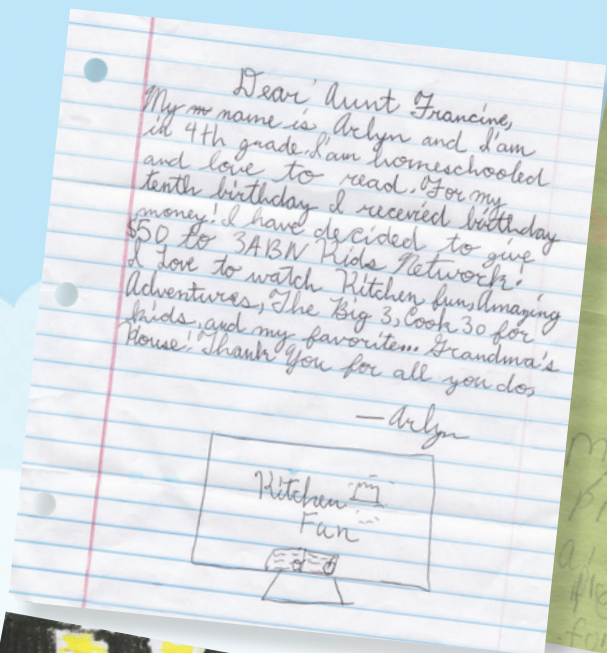 Dear Aunt Francine,
My m name is Arlyn and I'am
in 4th grade. I'am homeschooled
and love to read. For my
tenth birthday I received birthday
money! I have decided to give
$50 to 3ABN Kids Network.
I Love to watch Kitchen fun, Amazing
Adventures, The Big 3, Cook 30 for
kids, and my favorite... Grandma's
House! Thank You for all you do,
—Arlyn
Kitchen
Fun